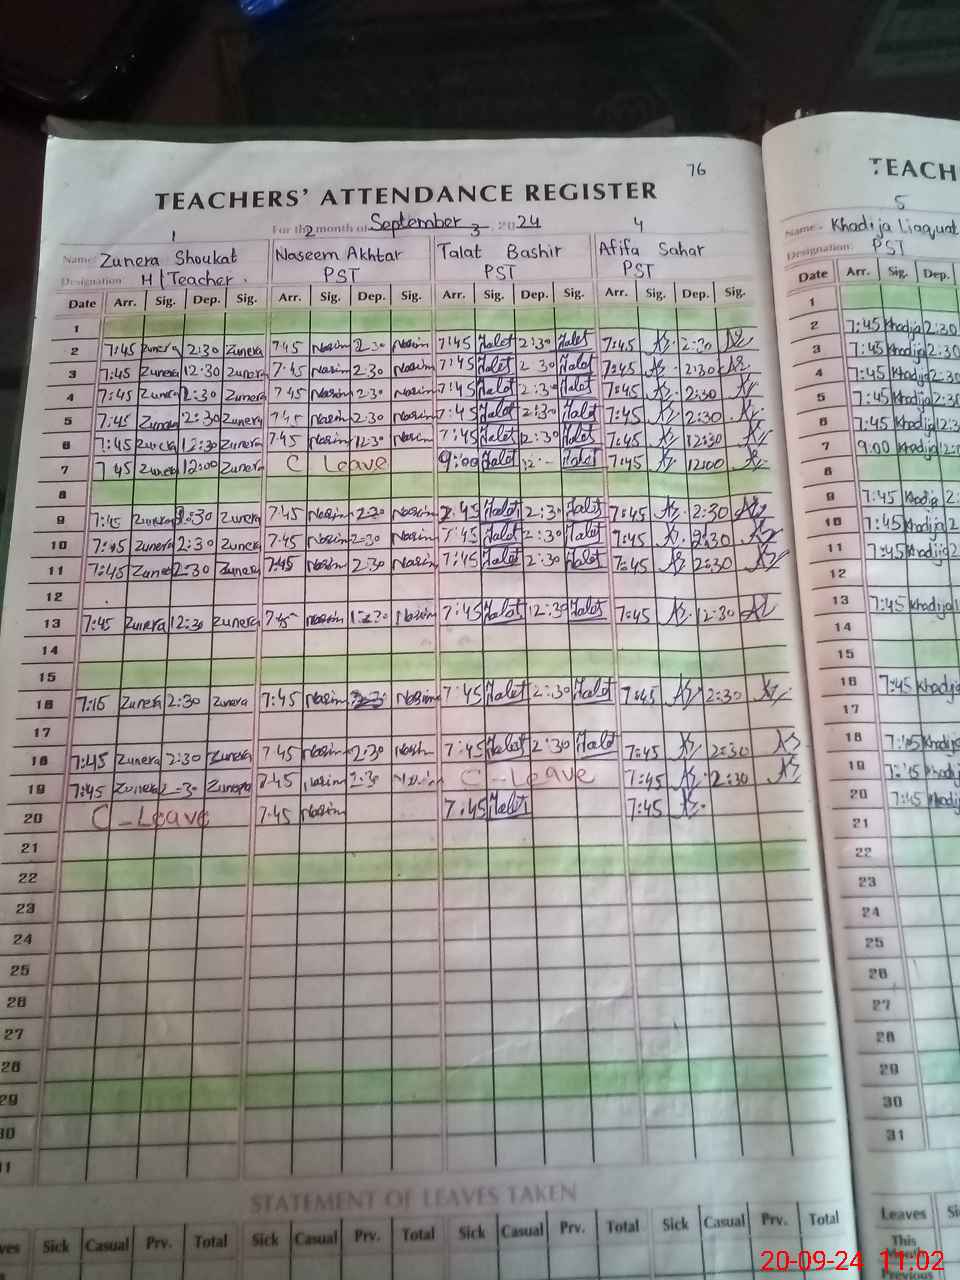 76
TEACHERS' ATTENDANCE REGISTER
For the month of September 2024
1 2 3 4
Name: Zunera Shoukat Naseem Akhtar Talat Bashir Afifa Sahar
Designation: H/Teacher. PST PST PST
Date Arr. Sig. Dep. Sig. Arr. Sig. Dep. Sig. Arr. Sig. Dep. Sig. Arr. Sig. Dep. Sig.
1
2 7:45 Zunera 2:30 Zunera 7:45 Nasim 2:30 Nasim 7:45 Talat 2:30 Talat 7:45 2:30
3 7:45 Zunera 12:30 Zunera 7:45 Nasim 2:30 Nasim 7:45 Talat 2:30 Talat 7:45 2:30
4 7:45 Zunera 2:30 Zunera 7:45 Nasim 2:30 Nasim 7:45 Talat 2:30 Talat 7:45 2:30
5 7:45 Zunera 2:30 Zunera 7:45 Nasim 2:30 Nasim 7:45 Talat 2:30 Talat 7:45 2:30
6 7:45 Zunera 12:30 Zunera 7:45 Nasim 12:30 Nasim 7:45 Talat 12:30 Talat 7:45 12:30
7 7:45 Zunera 12:00 Zunera C Leave 9:00 Talat Talat 7:45 12:00
8
9 7:45 Zunera 2:30 Zunera 7:45 Nasim 2:30 Nasim 7:45 Talat 2:30 Talat 7:45 2:30
10 7:45 Zunera 2:30 Zunera 7:45 Nasim 2:30 Nasim 7:45 Talat 2:30 Talat 7:45 2:30
11 7:45 Zunera 2:30 Zunera 7:45 Nasim 2:30 Nasim 7:45 Talat 2:30 Talat 7:45 2:30
12
13 7:45 Zunera 12:30 Zunera 7:45 Nasim 12:30 Nasim 7:45 Talat 12:30 Talat 7:45 12:30
14
15
16 Zunera 2:30 Zunera 7:45 Nasim Nasim 7:45 Talat 2:30 Talat 7:45 2:30
17
18 7:45 Zunera 2:30 Zunera 7:45 Nasim 2:30 Nasim 7:45 Talat 2:30 Talat 7:45 2:30
19 7:45 Zunera 2:30 Zunera 7:45 Nasim 2:30 Nasim C-Leave 7:45 2:30
20 C-Leave 7:45 Nasim 7:45 Talat 7:45
21
22
23
24
25
26
27
28
29
30
31
STATEMENT OF LEAVES TAKEN
Sick Casual Prv. Total Sick Casual Prv. Total Sick Casual Prv. Total Sick Casual Prv. Total
TEACH
5
Name. Khadija Liaquat
Designation: PST
Date Arr. Sig. Dep.
1
2 7:45 Khadija 2:30
3 7:45 Khadija 2:30
4 7:45 Khadija 2:30
5 7:45 Khadija 2:30
6 7:45 Khadija
7 9:00 Khadija
8
9 7:45 Khadija
10 7:45 Khadija
11 7:45 Khadija
12
13 7:45 Khadija
14
15
16 7:45 Khadija
17
18 7:45 Khadija
19 7:45 Khadija
20 7:45 Khadija
21
22
23
24
25
26
27
28
29
30
31
Leaves
This
Month
Previous
20-09-24 11:02